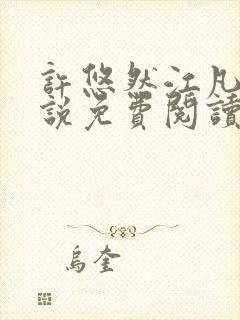 許悠然江凡
說免費閱讀
烏奎